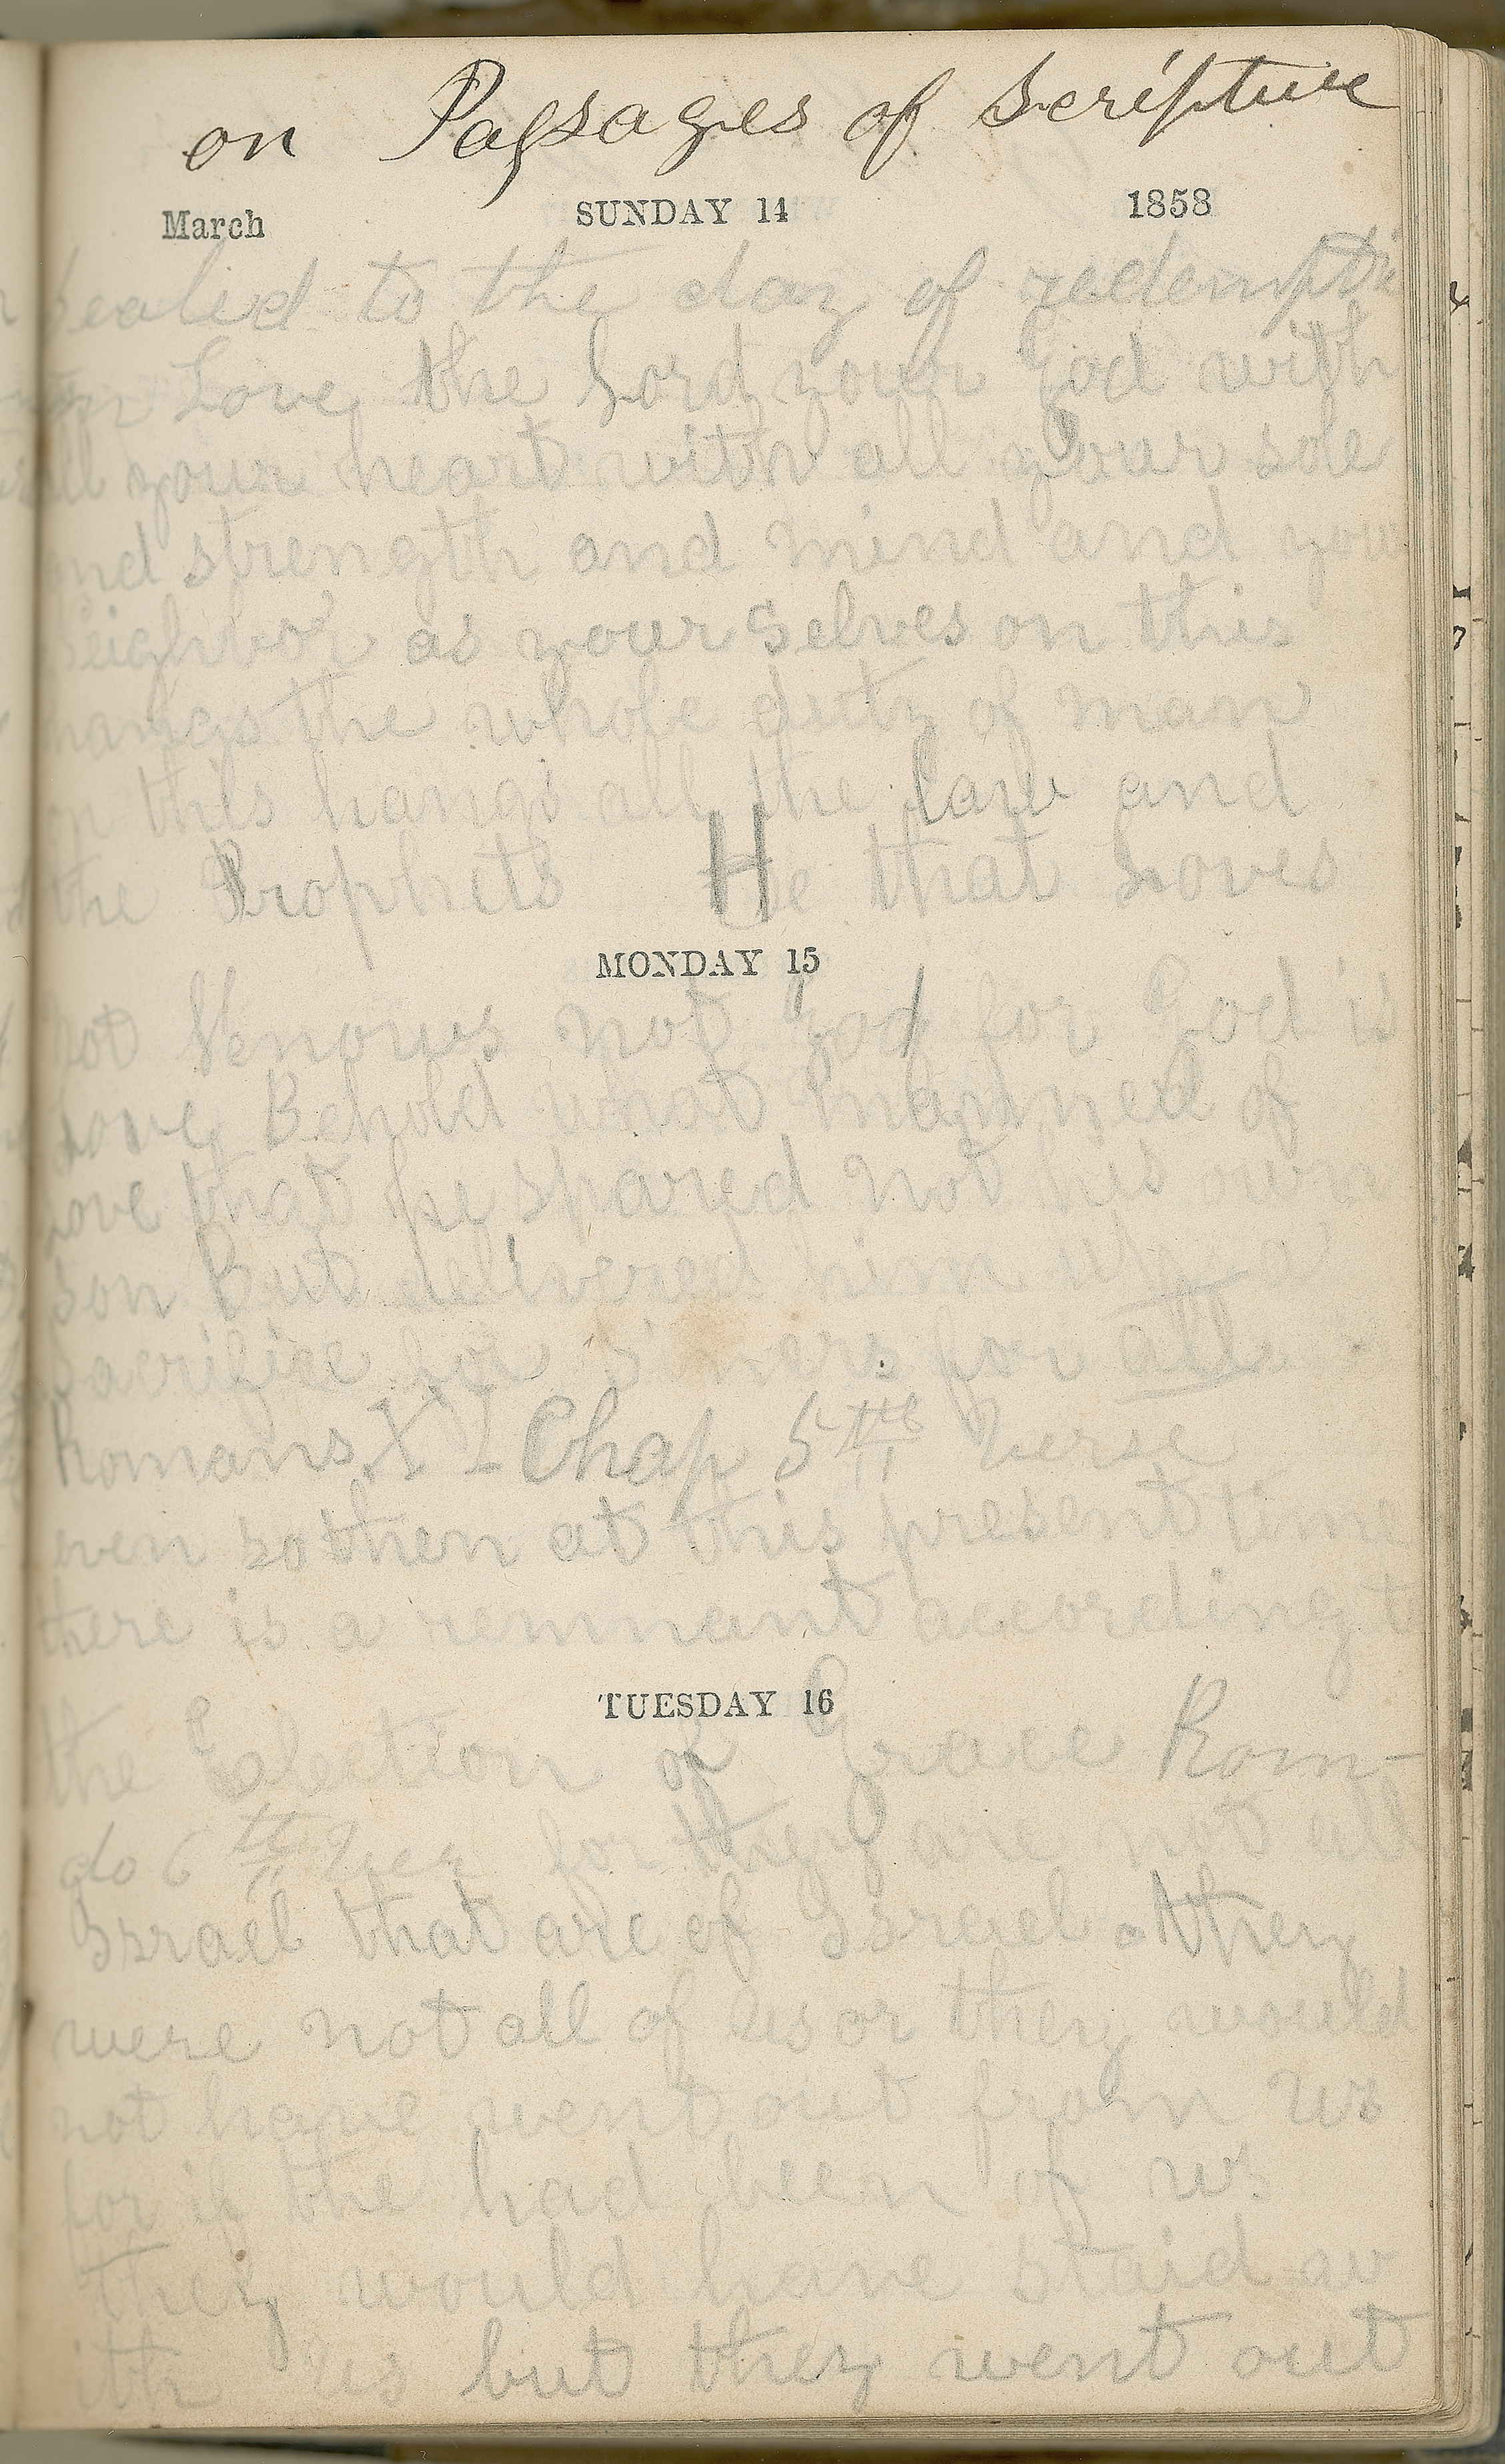 on Passages of Scripture
March SUNDAY 14 1858
Sealed to the day of redempti
Love the Lord your God with
all your heart with all your sole
and strength and mind and your
Neighbor as your Selves on this
hangs the whole duty of man
on this hangs all the law and
the Prophets He that Loves
MONDAY 15
not Knows not God for God is
Love Behold what manner of
Love that he spared not his own
Son But delivered him up a
Sacrifice for sinners for all
Romans XI Chap 5th verse
even so then at this present time
there is a remnant according to
TUESDAY 16
the Election of Grace Rom-
do 6th ver for they are not all
Israel that are of Israel they
were not all of us or they would
not have went out from us
for if the had been of us
they would have staid w
ith us but they went out